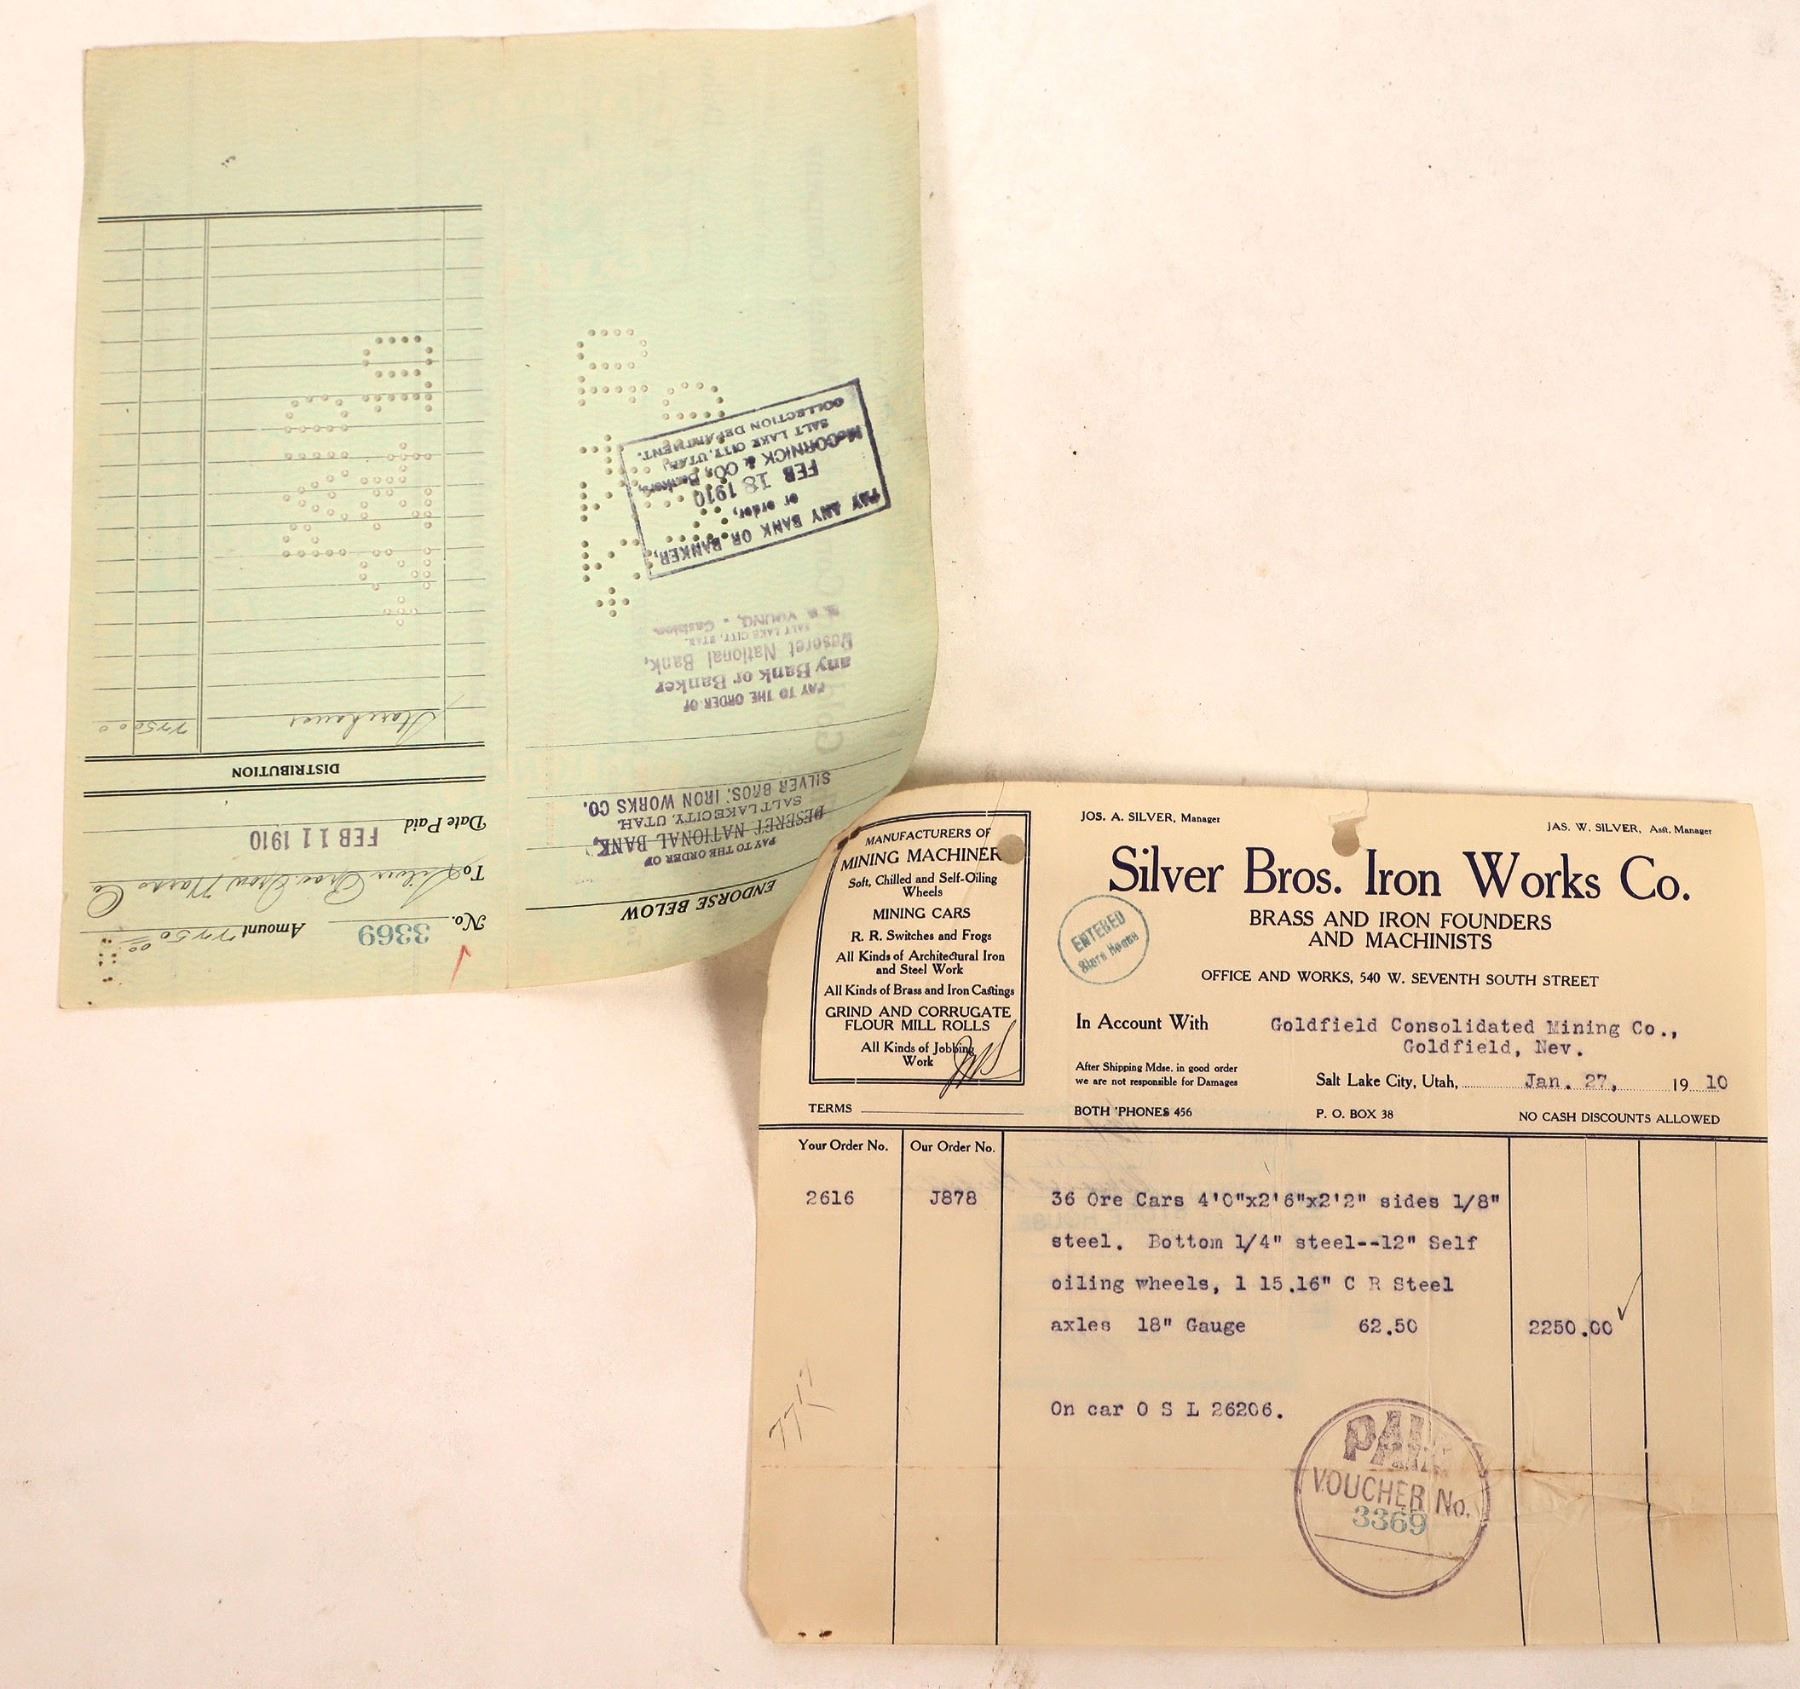 No. 3369 Amount 2250.00
To Silver Bros. Iron Works Co
Date Paid FEB 11 1910
DISTRIBUTION
2250 00
ENDORSE BELOW
PAY TO THE ORDER OF
DESERET NATIONAL BANK,
SALT LAKE CITY, UTAH.
SILVER BROS. IRON WORKS CO.
PAY TO THE ORDER OF
any Bank or Banker
Deseret National Bank,
SALT LAKE CITY, UTAH.
YOUNG, Cashier
PAY ANY BANK OR BANKER,
or order,
FEB 18 1910
McCORNICK & CO., Bankers,
SALT LAKE CITY, UTAH,
COLLECTION DEPARTMENT.
PAID
MANUFACTURERS OF
MINING MACHINER
Soft, Chilled and Self-Oiling
Wheels
MINING CARS
R. R. Switches and Frogs
All Kinds of Architectural Iron
and Steel Work
All Kinds of Brass and Iron Castings
GRIND AND CORRUGATE
FLOUR MILL ROLLS
All Kinds of Jobbing
Work
TERMS
JOS. A. SILVER, Manager
JAS. W. SILVER, Asst. Manager
Silver Bros. Iron Works Co.
BRASS AND IRON FOUNDERS
AND MACHINISTS
OFFICE AND WORKS, 540 W. SEVENTH SOUTH STREET
ENTERED
Store House
In Account With Goldfield Consolidated Mining Co.,
Goldfield, Nev.
After Shipping Mdse. in good order
we are not responsible for Damages
Salt Lake City, Utah, Jan. 27, 1910
BOTH 'PHONES 456 P. O. BOX 38 NO CASH DISCOUNTS ALLOWED
Your Order No. Our Order No.
2616 J878 36 Ore Cars 4'0"x2'6"x2'2" sides 1/8"
steel. Bottom 1/4" steel--12" Self
oiling wheels, 1 15.16" C R Steel
axles 18" Gauge 62.50 2250.00
On car O S L 26206.
PAID
VOUCHER No.
3369